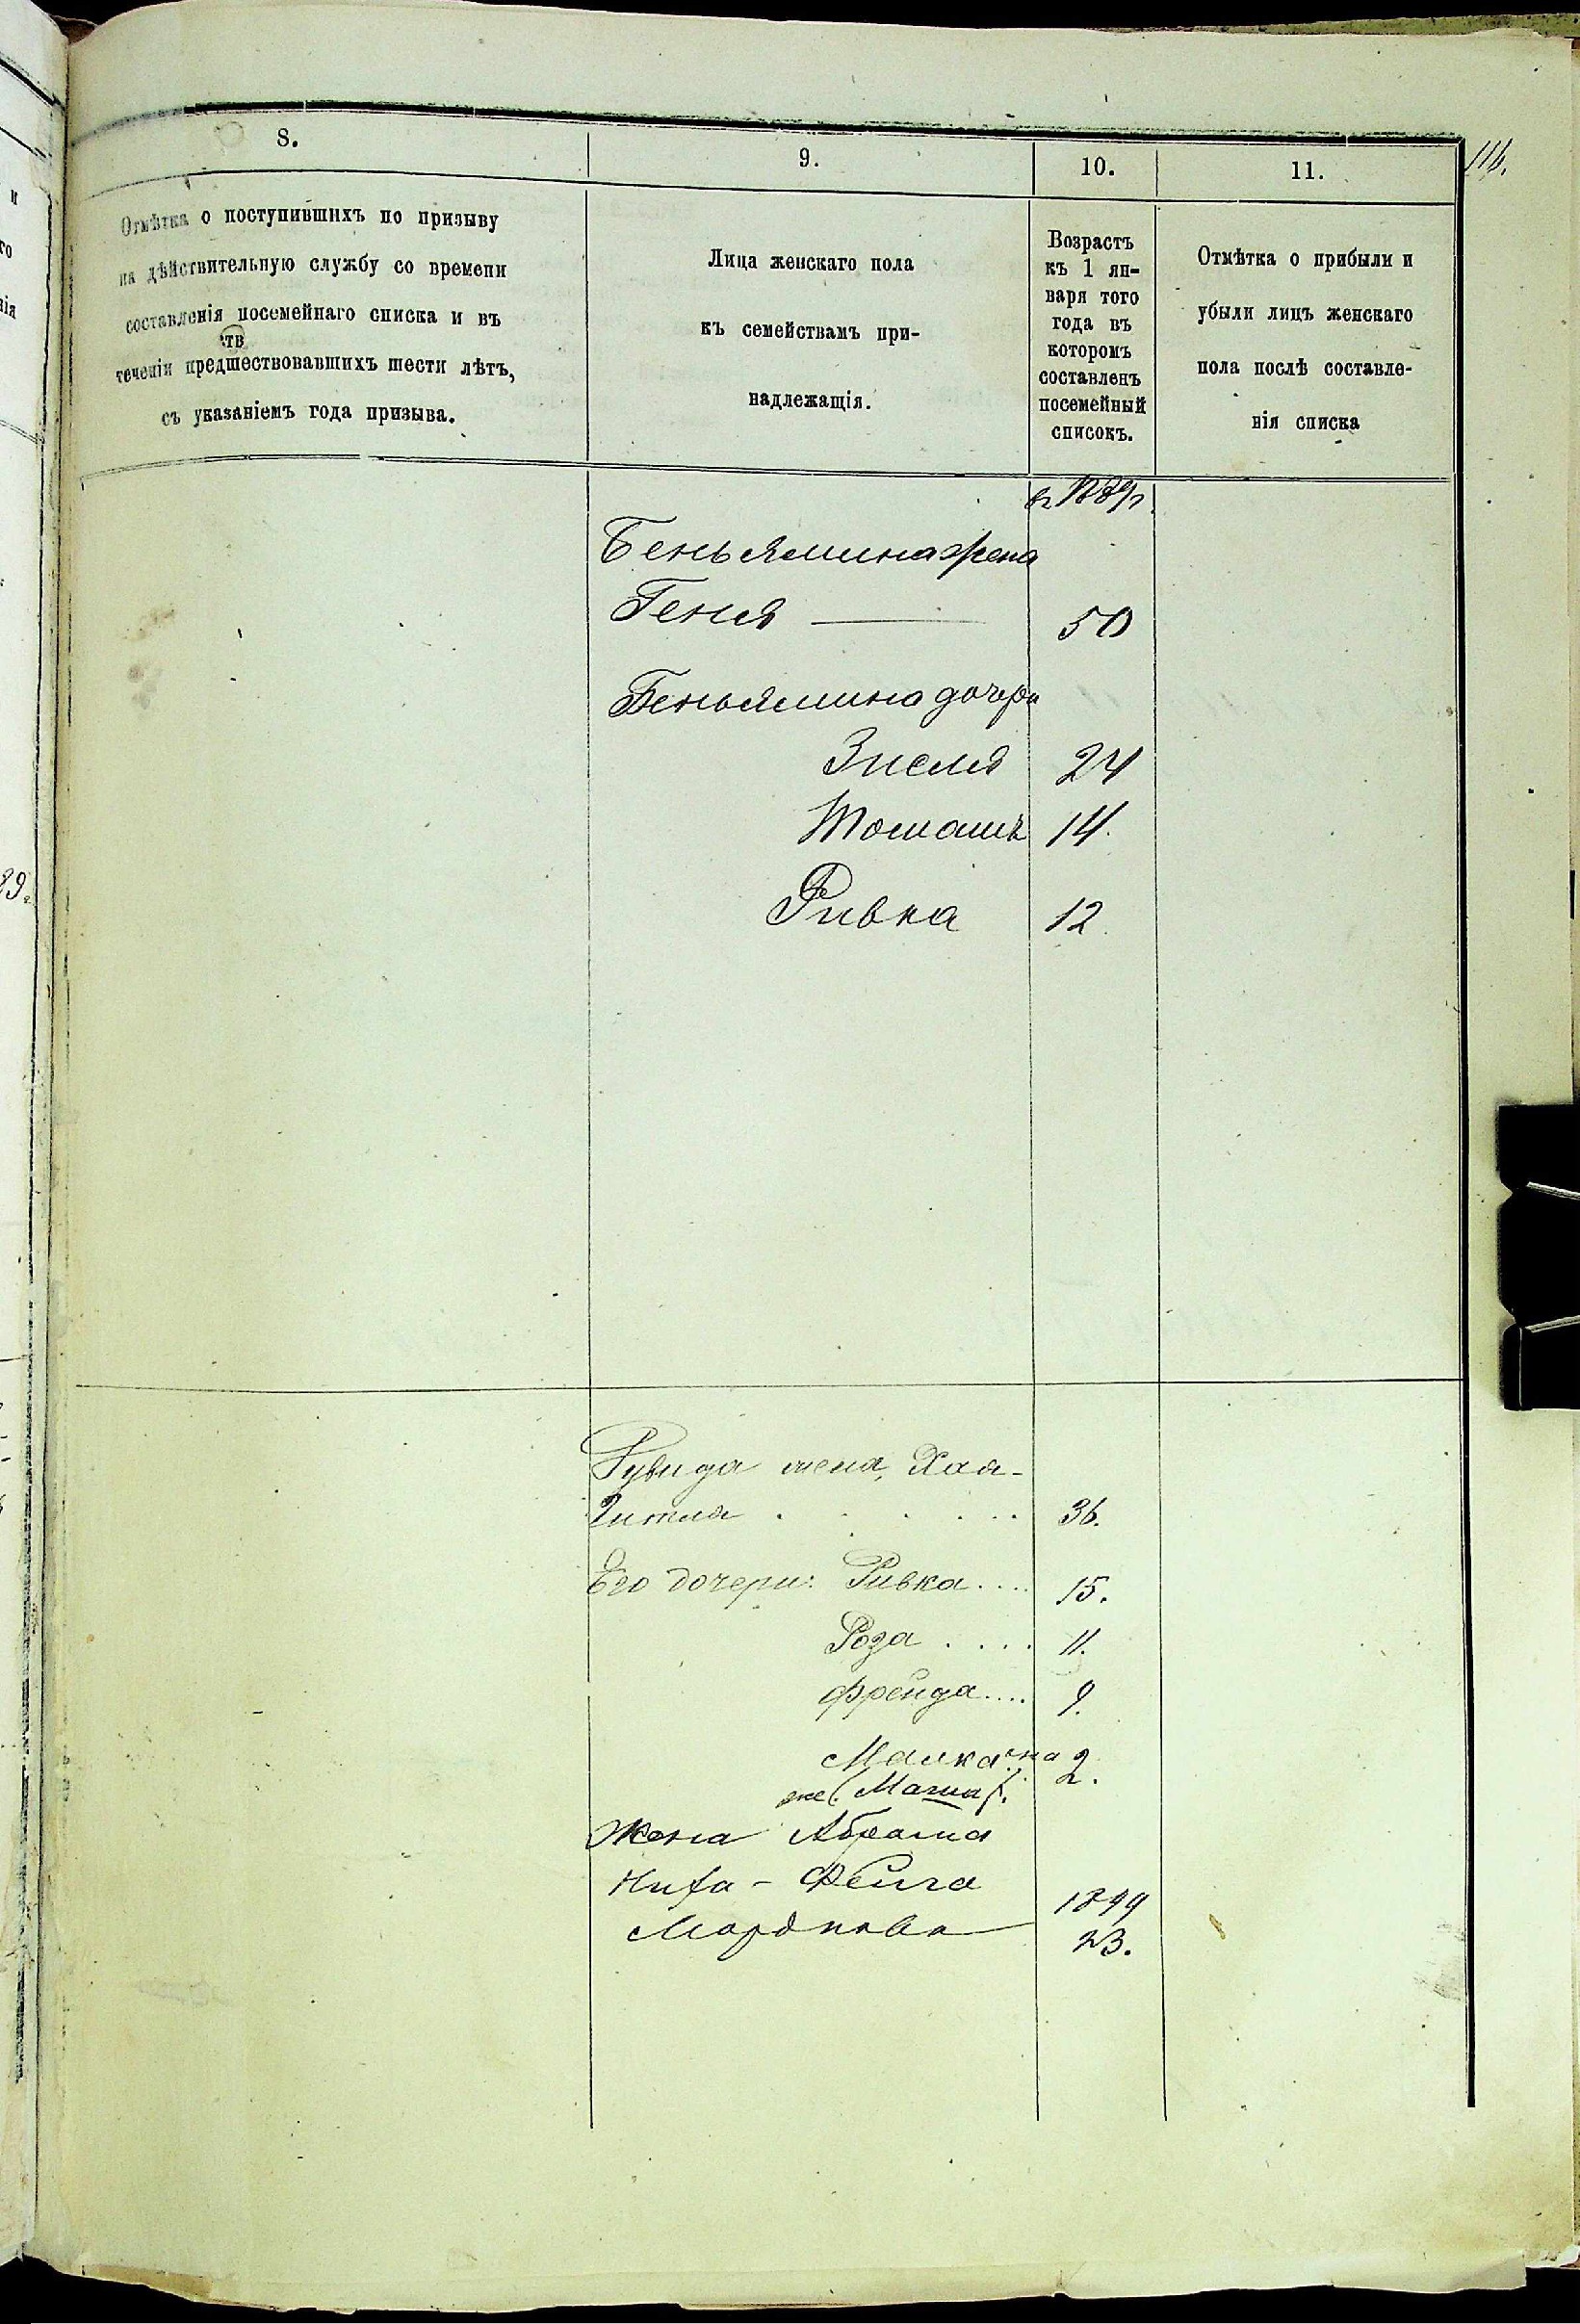 116.
8.
9.
10.
11.
Отмѣтка о поступившихъ по призыву
на дѣйствительную службу со времени
составленія посемейнаго списка и въ
тв
теченіи предшествовавшихъ шести лѣтъ,
съ указаніемъ года призыва.
Лица женскаго пола
къ семействамъ при-
надлежащія.
Возрастъ
къ 1 ян-
варя того
года въ
которомъ
составленъ
посемейный
списокъ.
Отмѣтка о прибыли и
убыли лицъ женскаго
пола послѣ составле-
нія списка
Беньямина жена
Геня 50
Беньямина дочери
Зисля 24
14.
Ривка 12
жена, Хая-
Гитля . . . . . . 36.
Его дочери: Ривка.... 15.
Роза . . . . 11.
Фрейда.... 9.
Малка она 2.
же (Магия).
Жена Абрама
Фейга
Мордкова
1899
23.
29